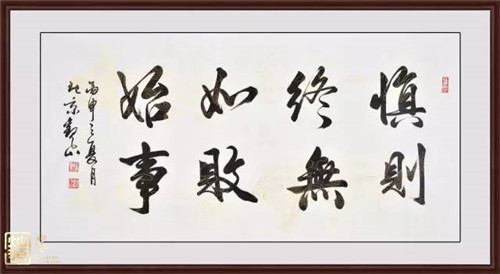 慎終如始
則無敗事
丙申之夏月
京山